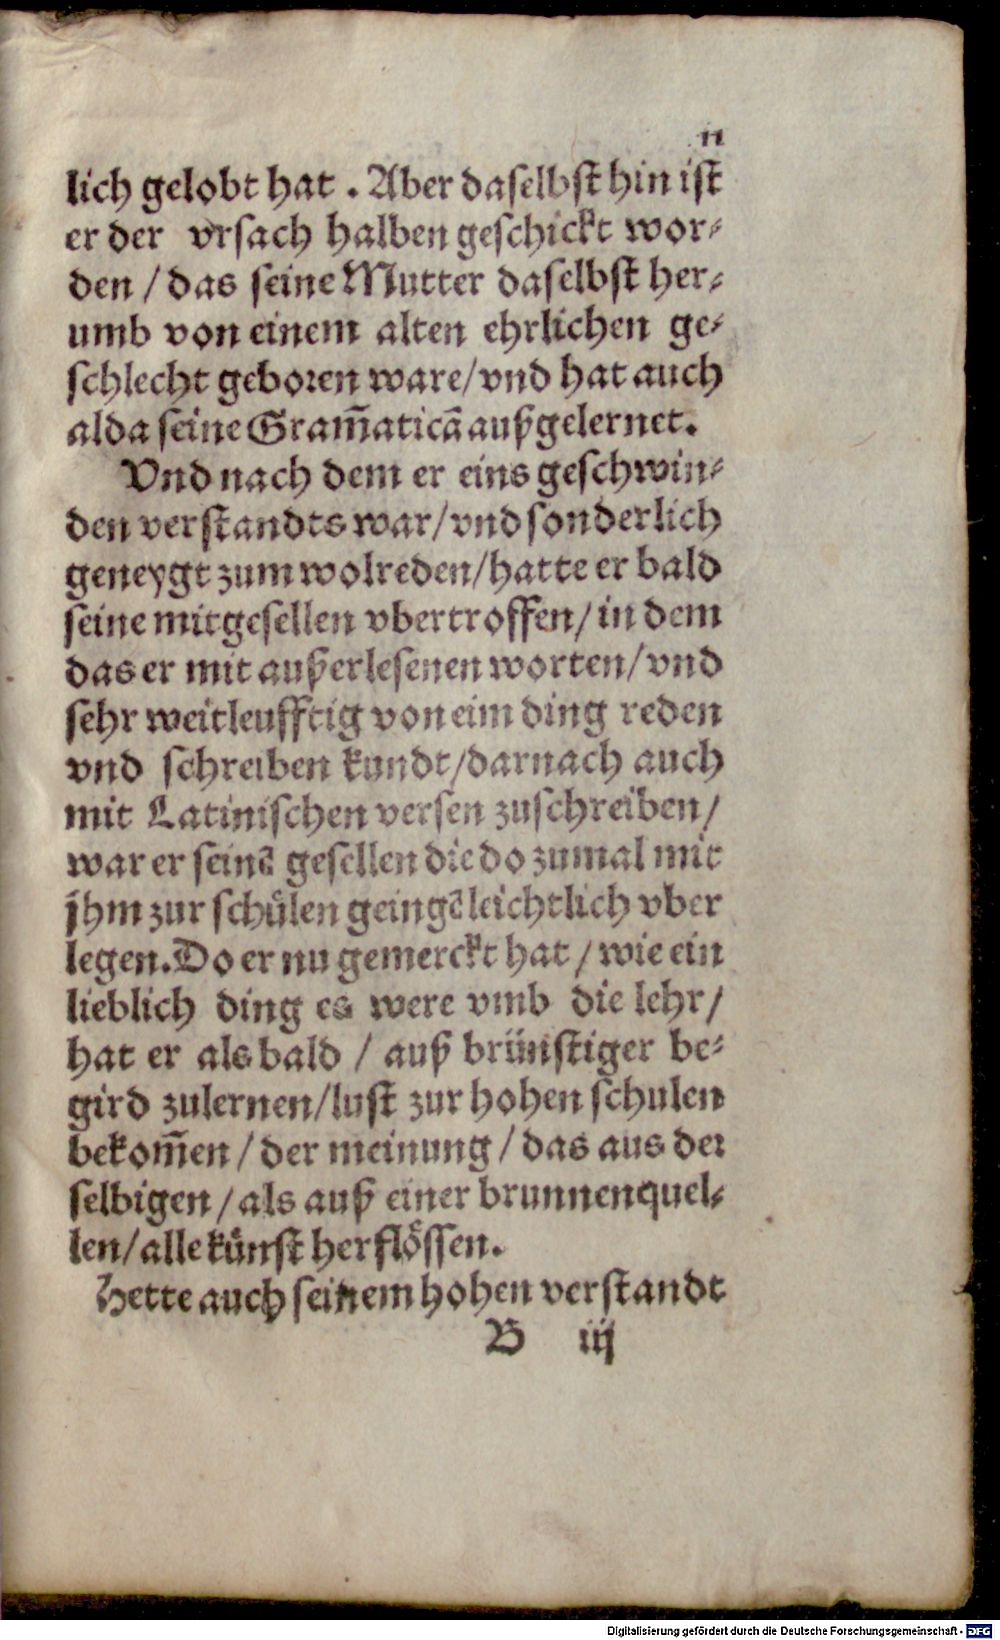 11
lich gelobt hat . Aber daselbst hin ist
er der vrsach halben geschickt wor⸗
den / das seine Mutter daselbst her⸗
umb von einem alten ehrlichen ge⸗
schlecht geboren ware/vnd hat auch
alda seine Gram̃aticã außgelernet.
Vnd nach dem er eins geschwin⸗
den verstandts war/vnd sonderlich
geneygt zum wolreden/hatte er bald
seine mitgesellen vbertroffen/in dem
das er mit außerlesenen worten/vnd
sehr weitleufftig von eim ding reden
vnd schreiben kundt/darnach auch
mit Latinischen versen zuschreiben/
war er seinẽ gesellen die do zumal mit
jhm zur schůlen geingẽ leichtlich vber
legen. Do er nu gemerckt hat / wie ein
lieblich ding es were vmb die lehr/
hat er als bald / auß brünstiger be⸗
gird zulernen/lust zur hohen schulen
bekom̃en / der meinung / das aus der
selbigen / als auß einer brunnenquel⸗
len/alle künst herflössen.
Hette auch seinem hohen verstandt
B iij
Digitalisierung gefördert durch die Deutsche Forschungsgemeinschaft - DFG